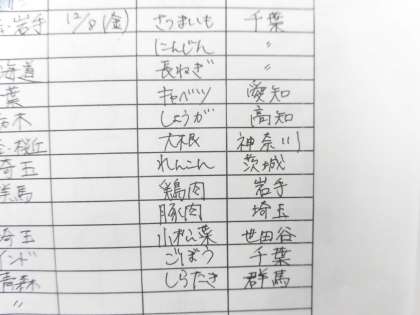 岩手 12/8(金) さつまいも 千葉
にんじん 〃
海道 長ねぎ 〃
葉 キャベツ 愛知
木 しょうが 高知
桜丘 大根 神奈川
埼玉 れんこん 茨城
馬 鶏肉 岩手
豚肉 埼玉
埼玉 小松菜 世田谷
インド ごぼう 千葉
青森 しらたき 群馬
〃